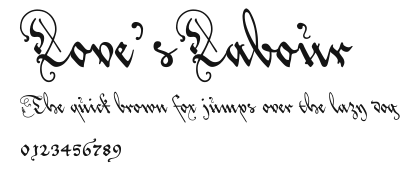 Love's Labour
The quick brown fox jumps over the lazy dog
0123456789